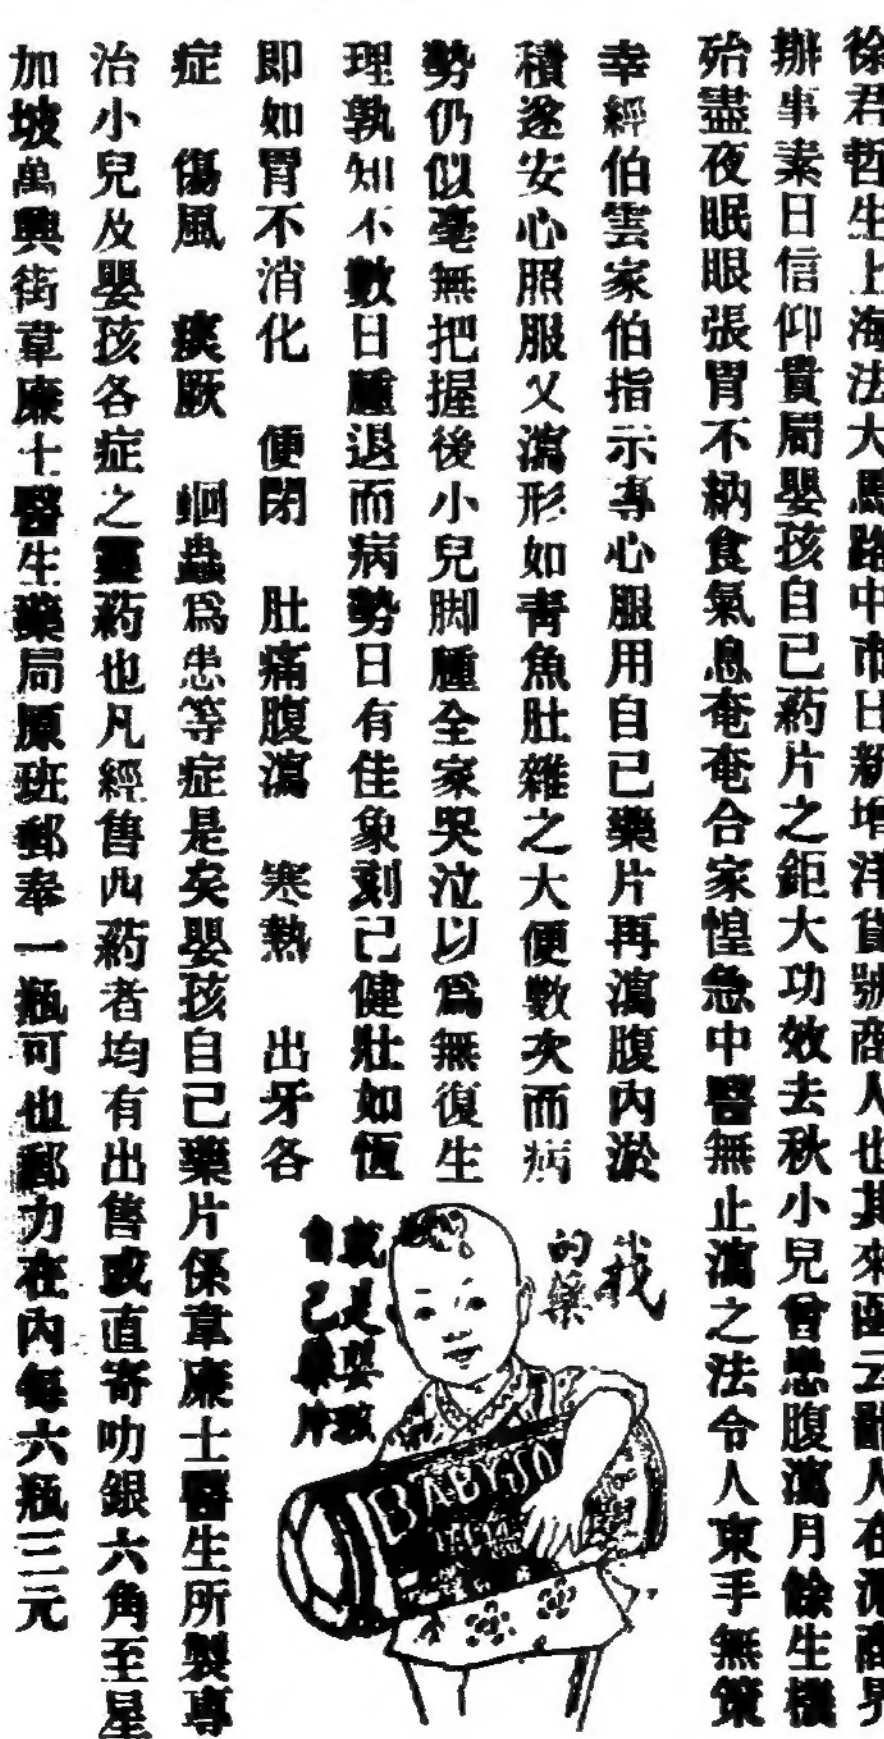 徐君哲生上海法大馬路中市日新增洋貨號商人也其來函云鄙人在滬商界
辦事素日信仰貴局嬰孩自己葯片之鉅大功效去秋小兒曾患腹瀉月餘生機
殆盡夜眠眼張胃不納食氣息奄奄合家惶急中醫無止瀉之法令人束手無策
幸經伯雲家伯指示專心服用自己藥片再瀉腹內淤
積遂安心照服又瀉形如青魚肚雜之大便數次而病
勢仍似毫無把握後小兒脚腫全家哭泣以爲無復生
理孰知不數日腫退而病勢日有佳象刻已健壯如恆
即如胃不消化 便閉 肚痛腹瀉 寒熱 出牙各
症 傷風 痰厥 蛔蟲爲患等症是矣嬰孩自己藥片係韋廉士醫生所製專
治小兒及嬰孩各症之靈葯也凡經售西葯者均有出售或直寄叻銀六角至星
加坡萬興街韋廉士醫生藥局原班郵奉一瓶可也郵力在內每六瓶三元
我
的藥
就是嬰孩
自己藥片
BABY'S O